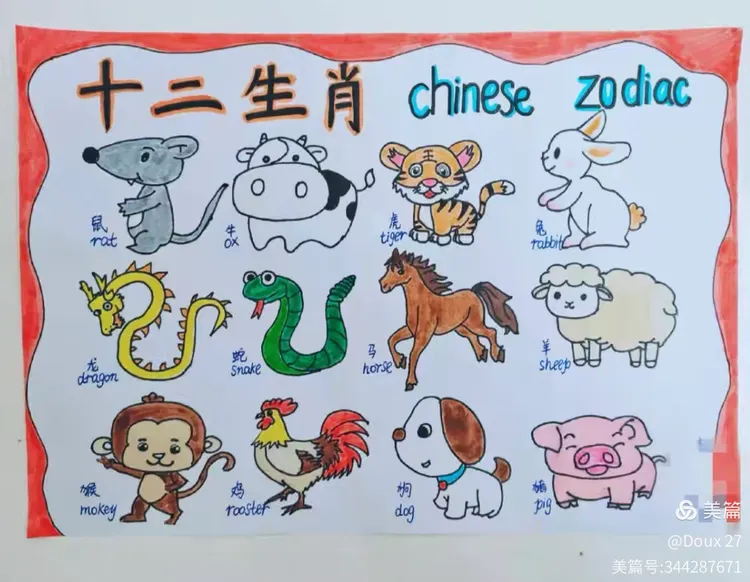 十二生肖 chinese zodiac
鼠
rat
牛
ox
虎
tiger
兔
rabbit
龙
dragon
蛇
snake
马
horse
羊
sheep
猴
mokey
鸡
rooster
狗
dog
猪
pig
美篇
@Doux 27
美篇号:344287671